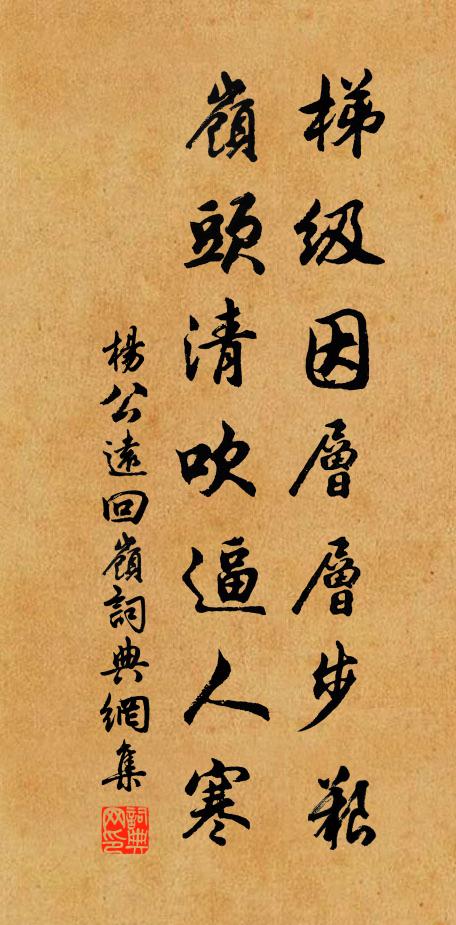 梯級因層層步艱
嶺頭清吹逼人寒
楊公遠回嶺詞典網集
詞典网印